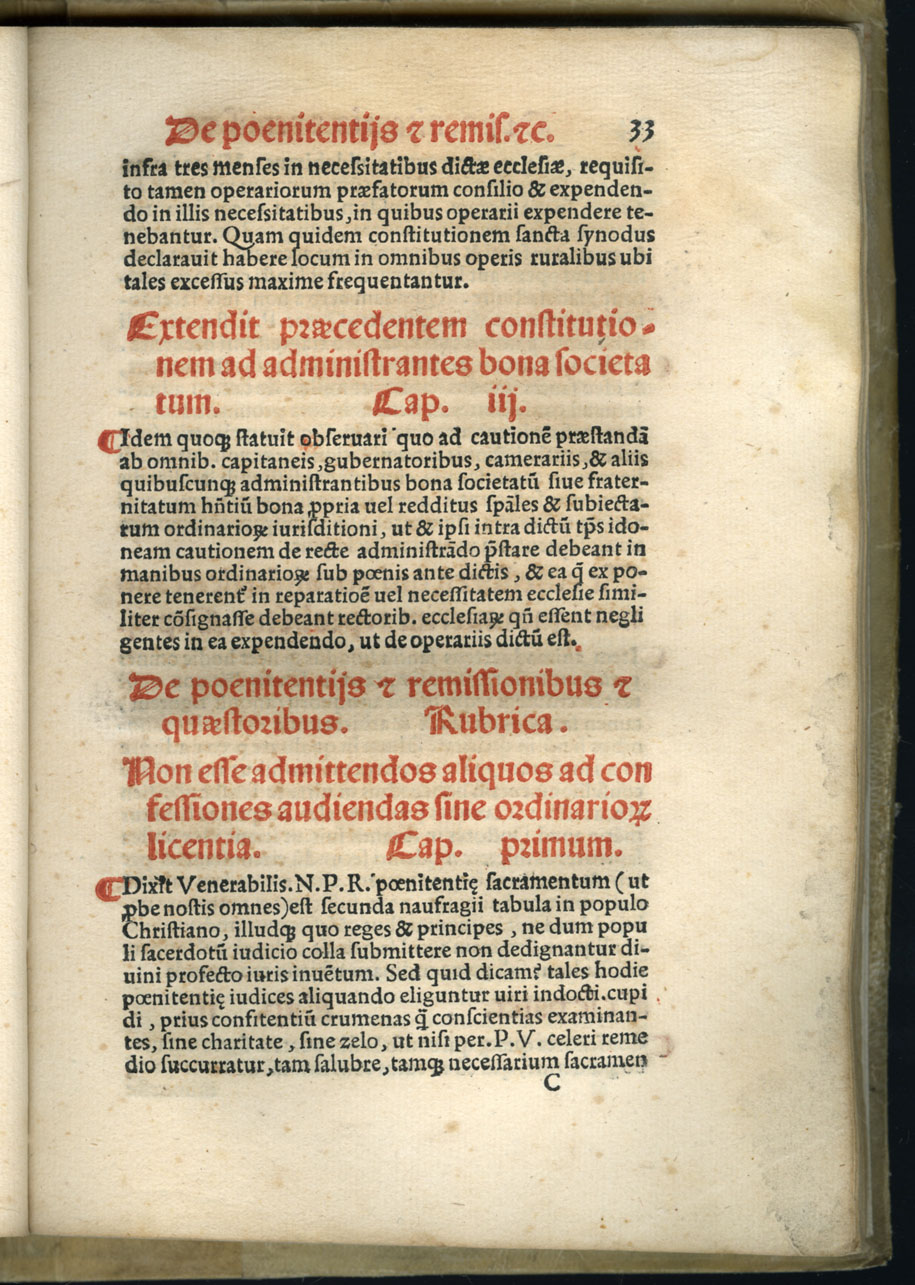 De poenitentijs ⁊ remiſ. ⁊c. 33
infra tres menſes in neceſsitatibus dictæ eccleſiæ, requiſi-
to tamen operariorum præfatorum conſilio & expenden-
do in illis neceſsitatibus, in quibus operarii expendere te-
nebantur. Quam quidem conſtitutionem ſancta ſynodus
declarauit habere locum in omnibus operis ruralibus ubi
tales exceſſus maxime frequentantur.
Extendit præcedentem conſtitutio-
nem ad adminiſtrantes bona ſocieta
tum. Cap. iij.
¶Idem quoqꝫ ſtatuit obſeruari quo ad cautionē præſtandā
ab omnib. capitaneis, gubernatoribus, camerariis, & aliis
quibuſcunqꝫ adminiſtrantibus bona ſocietatū ſiue frater-
nitatum hñtiū bona ꝓpria uel redditus ſpāles & ſubiecta-
rum ordinarioꝝ iuriſditioni, ut & ipſi intra dictū tp̄s ido-
neam cautionem de recte adminiſtrādo p̄ſtare debeant in
manibus ordinarioꝝ ſub pœnis ante dictis, & ea q̄ ex po-
nere tenerent᷑ in reparatioē uel neceſſitatem eccleſie ſimi-
liter cōſignaſſe debeant rectorib. eccleſiaꝝ qñ eſſent negli
gentes in ea expendendo, ut de operariis dictū eſt.
De poenitentijs ⁊ remiſſionibus ⁊
quæſtoribus. Rubrica.
Non eſſe admittendos aliquos ad con
feſſiones audiendas ſine ordinarioꝝ
licentia. Cap. primum.
¶Dixſt Venerabilis. N. P. R. pœnitentię ſacramentum (ut
ꝓbe noſtis omnes) eſt ſecunda naufragii tabula in populo
Chriſtiano, illudqꝫ quo reges & principes, ne dum popu
li ſacerdotū iudicio colla ſubmittere non dedignantur di-
uini profecto iuris inuētum. Sed quid dicam᷑ tales hodie
pœnitentię iudices aliquando eliguntur uiri indocti. cupi
di, prius confitentiū crumenas q̄ conſcientias examinan-
tes, ſine charitate, ſine zelo, ut niſi per. P. V. celeri reme
dio ſuccurratur, tam ſalubre, tamqꝫ neceſſarium ſacramen
C